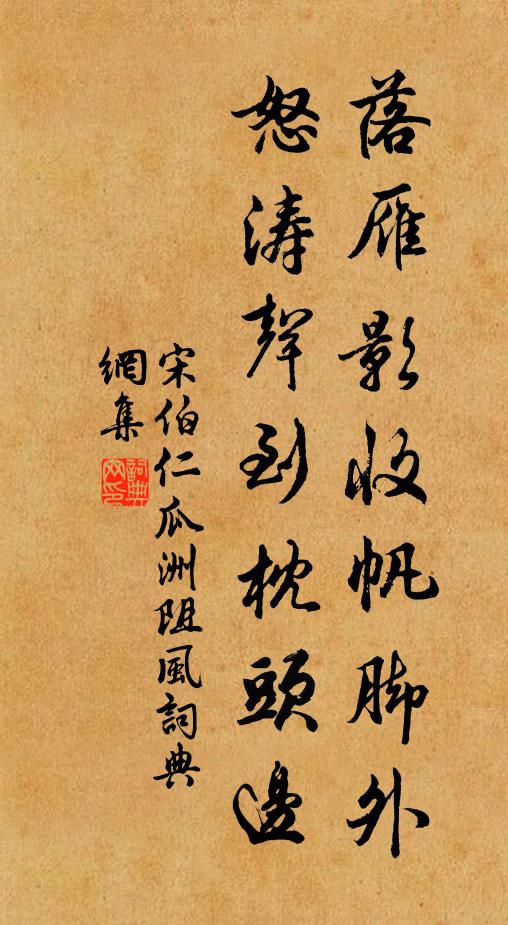 落雁影收帆脚外
怒涛聲到枕頭邊
宋伯仁瓜洲阻風詞典
網集
詞典網印